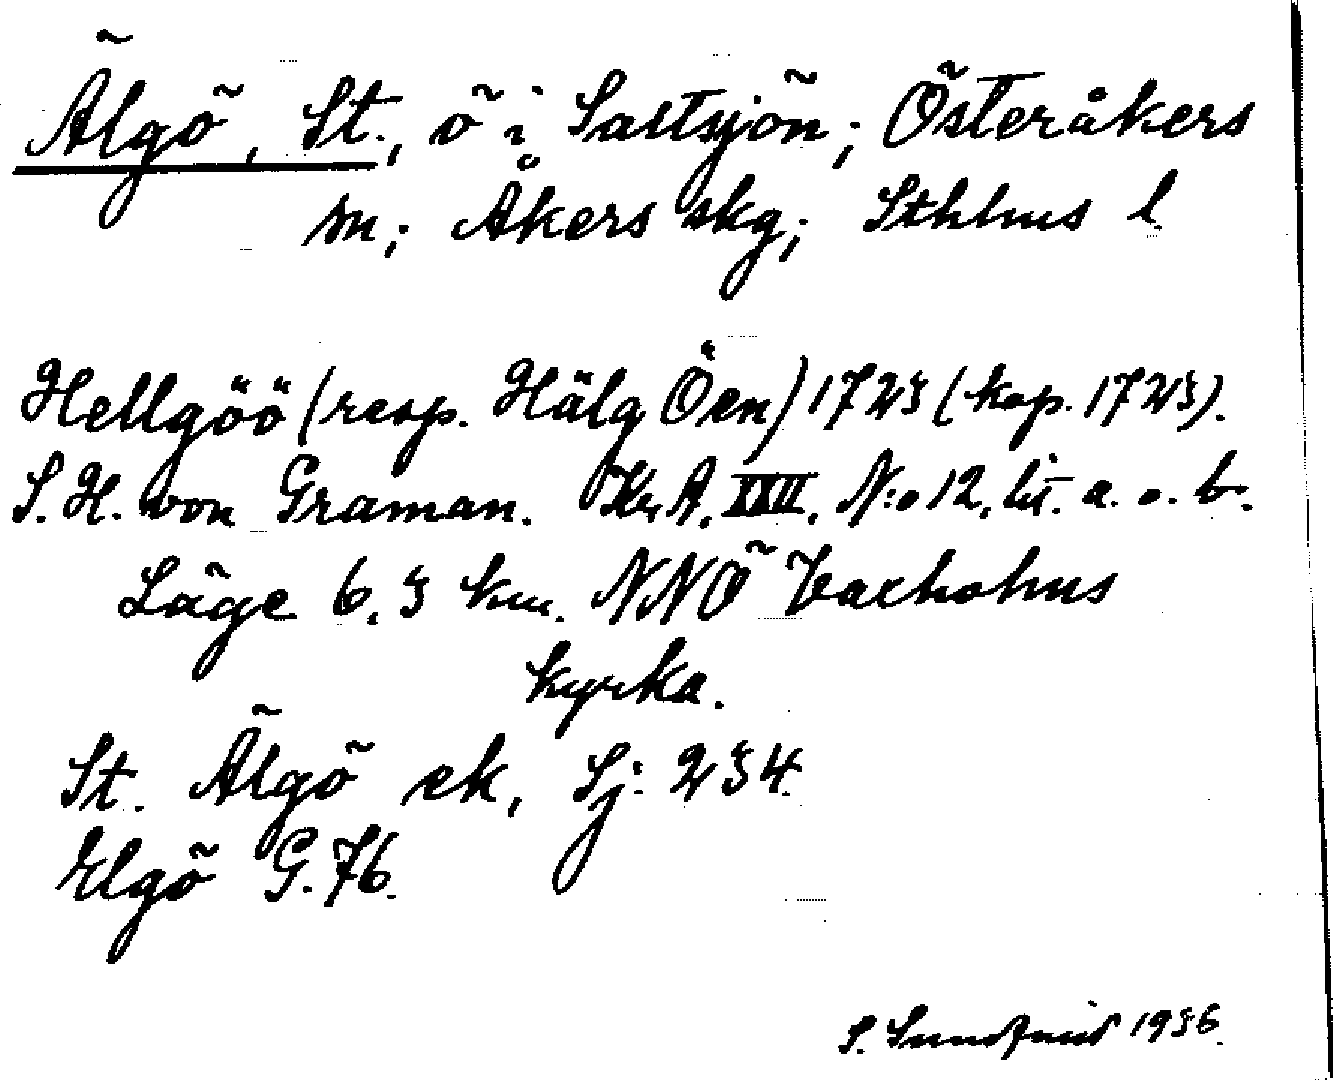 Älgö, St., ö i Saltsjön; Österåkers
sn; Åkers skg; Sthlms l
Hellgöö (resp. Hälg Öen) 1725 (kop. 1725).
S. H. von Graman. Kr.A. XXII. N:o 12, lit. a. o. b.
Läge 6,5 km. NNÖ Vaxholms
kyrka.
St. Älgö ek, Sj: 234.
Elgö G. 76.
S. Sundqvist 1936.